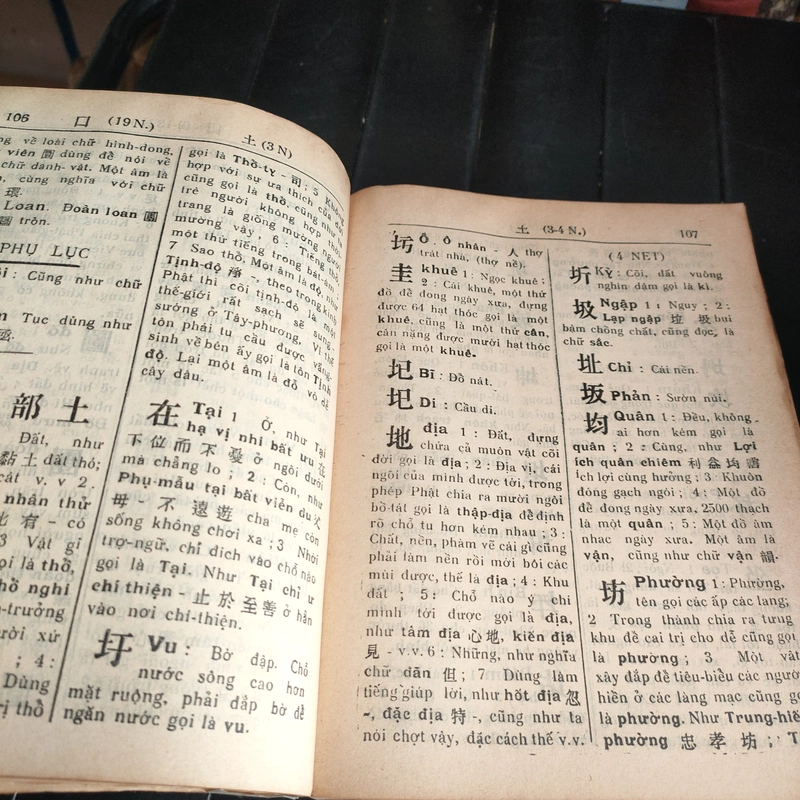 106 口 (19 N.)
về loài chữ hình-dong,
viên 圓 dùng để nói về
chữ danh-vật. Một âm là
cùng nghĩa với chữ
環.
Loan. Đoàn loan 團
圓 tròn.
PHỤ LỤC
: Cũng như chữ
Tục dùng như
部 土
Đất, như
黏土 đất thó;
cát v, v 2.
nhân thử
有 - có
3 Vật gì
gọi là thổ,
thổ nghi
-trưởng
người xứ
; 4 :
Dùng
trị thổ
土 (3 N)
gọi là Thổ-ty - 司 ; 5 Không
hợp với sự ưa thích của đời
cũng gọi là thổ, cũng như ta
trẻ người không hợp thời
trang là giống mường, người
mường vậy, 6 : Tiếng thổ,
một thứ tiếng trong bát-âm ;
7 Sao thổ. Một âm là độ, như
Tịnh-độ 淨 -, theo trong kinh
Phật thì cõi tịnh-độ là một
thế-giới rất sạch sẽ sung-
sướng ở Tây-phương, Vì thế
tôn phái tu cầu được vãng-
sinh về bên ấy gọi là tôn Tịnh
độ. Lại một âm là đỗ vỏ dễ
cây dâu.
在 Tại 1 Ở, như Tại
hạ vị nhi bất ưu 在
下位而不憂 ở ngôi dưới
mà chẳng lo ; 2 : Còn, như
Phụ-mẫu tại bất viễn du 父
母 - 不遠遊 cha mẹ còn
sống không chơi xa ; 3 Nhời
trợ-ngữ, chỉ đích vào chỗ nào
gọi là Tại. Như Tại chỉ ư
chí thiện - 止於至善 ở hẳn
vào nơi chí-thiện.
圩 Vu : Bờ đập. Chỗ
nước sông cao hơn
mặt ruộng, phải đắp bờ để
ngăn nước gọi là vu.
土 (3-4 N.) 107
圬 Ô. Ô nhân - 人 thợ
trát nhà, (thợ nề).
圭 khuê 1 : Ngọc khuê ;
2 : Cái khuê, một thứ
đồ để đong ngày xưa, đựng
được 64 hạt thóc gọi là một
khuê, cũng là một thứ cân,
cân nặng được mười hạt thóc
gọi là một khuê.
圮 Bĩ : Đồ nát.
圯 Di : Cầu di.
地 địa 1 : Đất, đựng
chứa cả muôn vật cõi
đời gọi là địa ; 2 : Địa vị, cái
ngôi của mình được tới, trong
phép Phật chia ra mười ngôi
bồ-tát gọi là thập-địa để định
rõ chỗ tu hơn kém nhau ; 3 :
Chất, nền, phàm vẽ cái gì cũng
phải làm nền rồi mới bôi các
mùi được, thế là địa ; 4 : Khu
đất ; 5 : Chỗ nào ý chí
mình tới được gọi là địa,
như tâm địa 心地, kiến địa
見 - v.v. 6 : Những, như nghĩa
chữ đãn 但 ; 7 Dùng làm
tiếng giúp lời, như hốt địa 忽
-, đặc địa 特 -, cũng như ta
nói chợt vậy, đặc cách thế v.v.
(4 NÉT)
圻 Kỳ : Cõi, đất vuông
nghìn dặm gọi là kì.
圾 Ngập 1 : Nguy ; 2 :
Lạp ngập 垃圾 bụi
bặm chồng chất, cũng đọc, là
chữ sắc.
址 Chỉ : Cái nền.
坂 Phản : Sườn núi.
均 Quân 1 : Đều, không
ai hơn kém gọi là
quân ; 2 : Cùng, như Lợi
ích quân chiêm 利益均霑
ích lợi cùng hưởng ; 3 Khuôn
đóng gạch ngói ; 4 : Một đồ
để đong ngày xưa, 2500 thạch
là một quân ; 5 : Một đồ âm
nhạc ngày xưa. Một âm là
vận, cũng như chữ vận 韻.
坊 Phường 1 : Phường,
tên gọi các ấp các làng;
2 Trong thành chia ra từng
khu để cai trị cho dễ cũng gọi
là phường ; 3 Một vật
xây đắp để tiêu-biểu các người
hiền ở các làng mạc cũng gọi
là phường. Như Trung-hiế
phường 忠孝坊 ; T